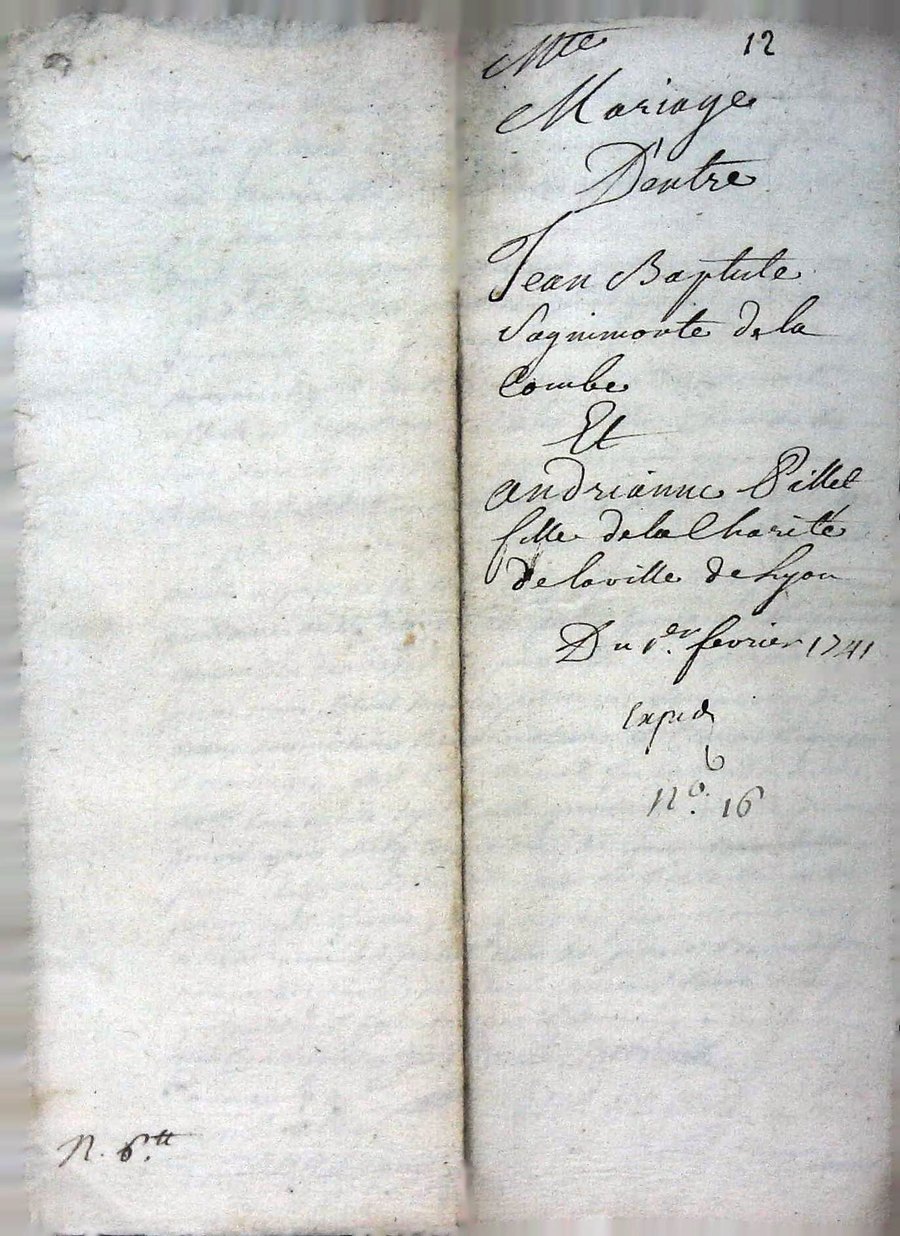 Mte 12
Mariage
D'entre
Jean Baptiste
Sagnimorte de la
Combe
Et
andrianne Pillet
fille de la Charité
de la ville de Lyon
Du 1.er fevrier 1741
Exped
n.o 16
N. 6.tt